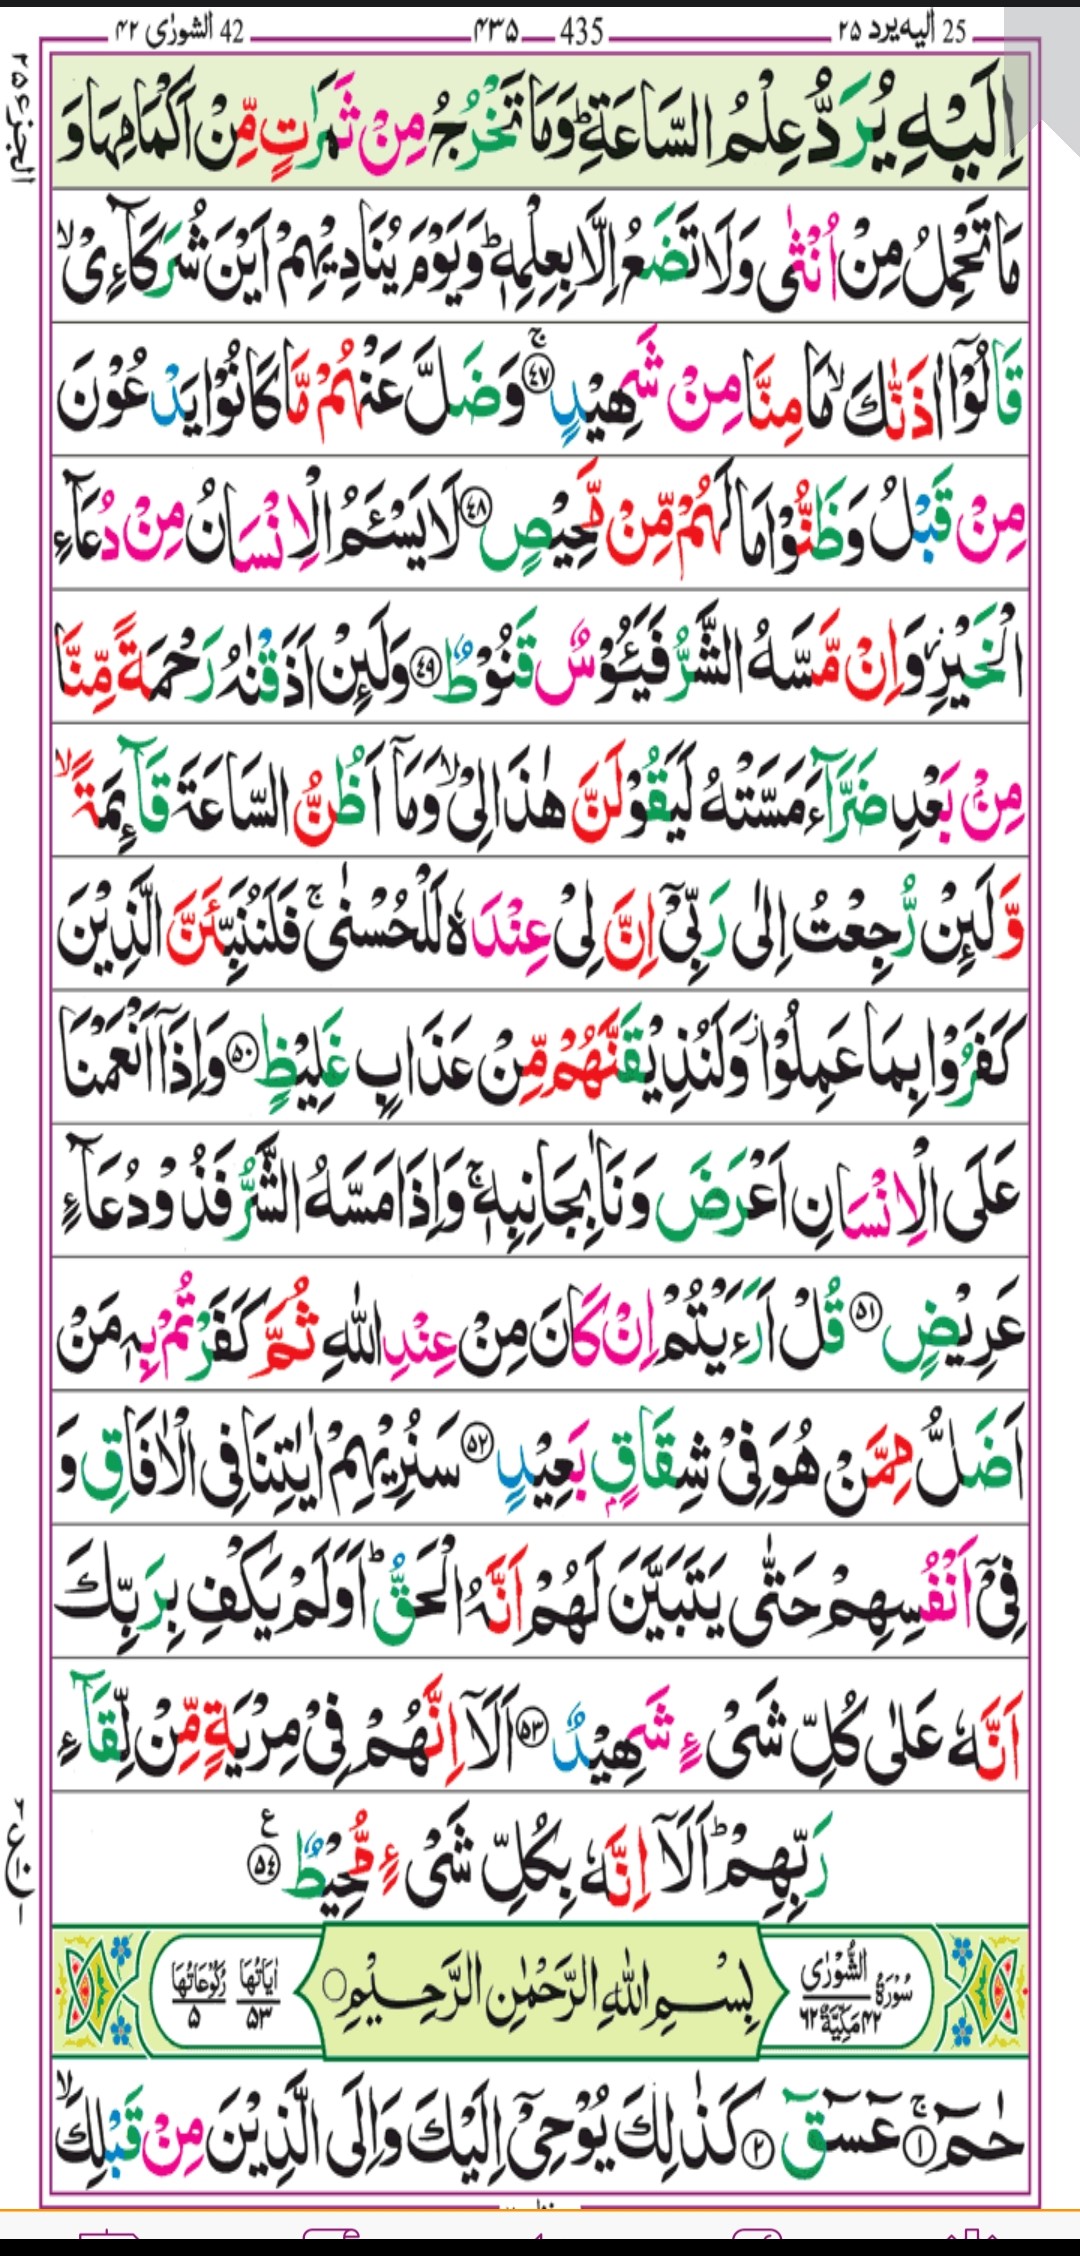 25 اليه يرد ۲۵ 435 ۴۳۵ 42 الشورٰى ۴۲
الجزء ۲۵
اِلَيْهِ يُرَدُّ عِلْمُ السَّاعَةِ ؕ وَمَا تَخْرُجُ مِنْ ثَمَرٰتٍ مِّنْ اَكْمَامِهَا وَ
مَا تَحْمِلُ مِنْ اُنْثٰى وَلَا تَضَعُ اِلَّا بِعِلْمِهٖ ؕ وَيَوْمَ يُنَادِيْهِمْ اَيْنَ شُرَكَآءِىْ ۙ
قَالُوْۤا اٰذَنّٰكَ ۙ مَا مِنَّا مِنْ شَهِيْدٍ ۚ ﴿۴۷﴾ وَضَلَّ عَنْهُمْ مَّا كَانُوْا يَدْعُوْنَ
مِنْ قَبْلُ وَظَنُّوْا مَا لَهُمْ مِّنْ مَّحِيْصٍ ﴿۴۸﴾ لَا يَسْـَٔمُ الْاِنْسَانُ مِنْ دُعَآءِ
الْخَيْرِ ؗ وَاِنْ مَّسَّهُ الشَّرُّ فَيَـُٔوْسٌ قَنُوْطٌ ﴿۴۹﴾ وَلَئِنْ اَذَقْنٰهُ رَحْمَةً مِّنَّا
مِنْۢ بَعْدِ ضَرَّآءَ مَسَّتْهُ لَيَقُوْلَنَّ هٰذَا لِىْ ۙ وَمَاۤ اَظُنُّ السَّاعَةَ قَآئِمَةً ۙ
وَّلَئِنْ رُّجِعْتُ اِلٰى رَبِّىْۤ اِنَّ لِىْ عِنْدَهٗ لَلْحُسْنٰى ۚ فَلَنُنَبِّئَنَّ الَّذِيْنَ
كَفَرُوْا بِمَا عَمِلُوْا ؗ وَلَنُذِيْقَنَّهُمْ مِّنْ عَذَابٍ غَلِيْظٍ ﴿۵۰﴾ وَاِذَاۤ اَنْعَمْنَا
عَلَى الْاِنْسَانِ اَعْرَضَ وَنَاٰ بِجَانِبِهٖ ۚ وَاِذَا مَسَّهُ الشَّرُّ فَذُوْ دُعَآءٍ
عَرِيْضٍ ﴿۵۱﴾ قُلْ اَرَءَيْتُمْ اِنْ كَانَ مِنْ عِنْدِ اللّٰهِ ثُمَّ كَفَرْتُمْ بِهٖ مَنْ
اَضَلُّ مِمَّنْ هُوَ فِىْ شِقَاقٍۭ بَعِيْدٍ ﴿۵۲﴾ سَنُرِيْهِمْ اٰيٰتِنَا فِى الْاٰفَاقِ وَ
فِىْۤ اَنْفُسِهِمْ حَتّٰى يَتَبَيَّنَ لَهُمْ اَنَّهُ الْحَقُّ ؕ اَوَلَمْ يَكْفِ بِرَبِّكَ
اَنَّهٗ عَلٰى كُلِّ شَىْءٍ شَهِيْدٌ ﴿۵۳﴾ اَلَاۤ اِنَّهُمْ فِىْ مِرْيَةٍ مِّنْ لِّقَآءِ
رَبِّهِمْ ؕ اَلَاۤ اِنَّهٗ بِكُلِّ شَىْءٍ مُّحِيْطٌ ﴿۵۴﴾ ع
۶ ع ۱۰ ۱
سُوْرَةُ الشُّوْرٰى ۴۲ مَكِّيَّةٌ ۶۲ بِسْمِ اللّٰهِ الرَّحْمٰنِ الرَّحِيْمِ اٰيَاتُهَا ۵۳ رُكُوْعَاتُهَا ۵
حٰمٓ ۚ ﴿۱﴾ عٓسٓقٓ ﴿۲﴾ كَذٰلِكَ يُوْحِىْۤ اِلَيْكَ وَاِلَى الَّذِيْنَ مِنْ قَبْلِكَ ۙ